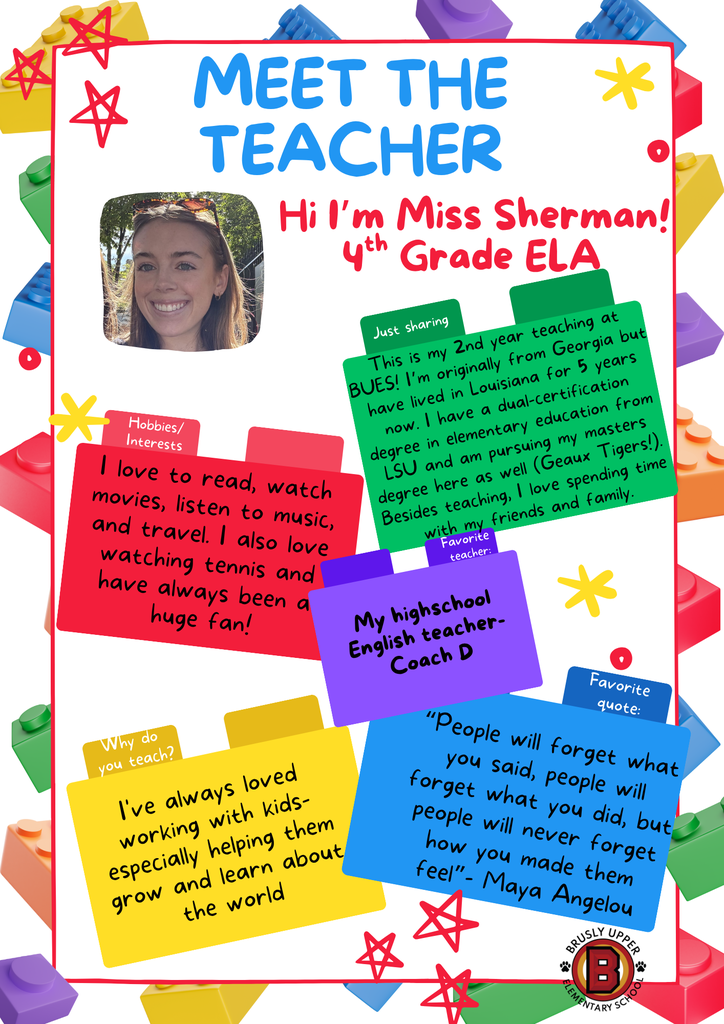 MEET THE
TEACHER
Hi I'm Miss Sherman!
4th Grade ELA
Just sharing
This is my 2nd year teaching at
BUES! I'm originally from Georgia but
have lived in Louisiana for 5 years
now. I have a dual-certification
degree in elementary education from
LSU and am pursuing my masters
degree here as well (Geaux Tigers!).
Besides teaching, I love spending time
with my friends and family.
Hobbies/
Interests
I love to read, watch
movies, listen to music,
and travel. I also love
watching tennis and
have always been a
huge fan!
Favorite
teacher:
My highschool
English teacher-
Coach D
Favorite
quote:
"People will forget what
you said, people will
forget what you did, but
people will never forget
how you made them
feel"- Maya Angelou
Why do
you teach?
I've always loved
working with kids-
especially helping them
grow and learn about
the world
BRUSLY UPPER
B
ELEMENTARY SCHOOL